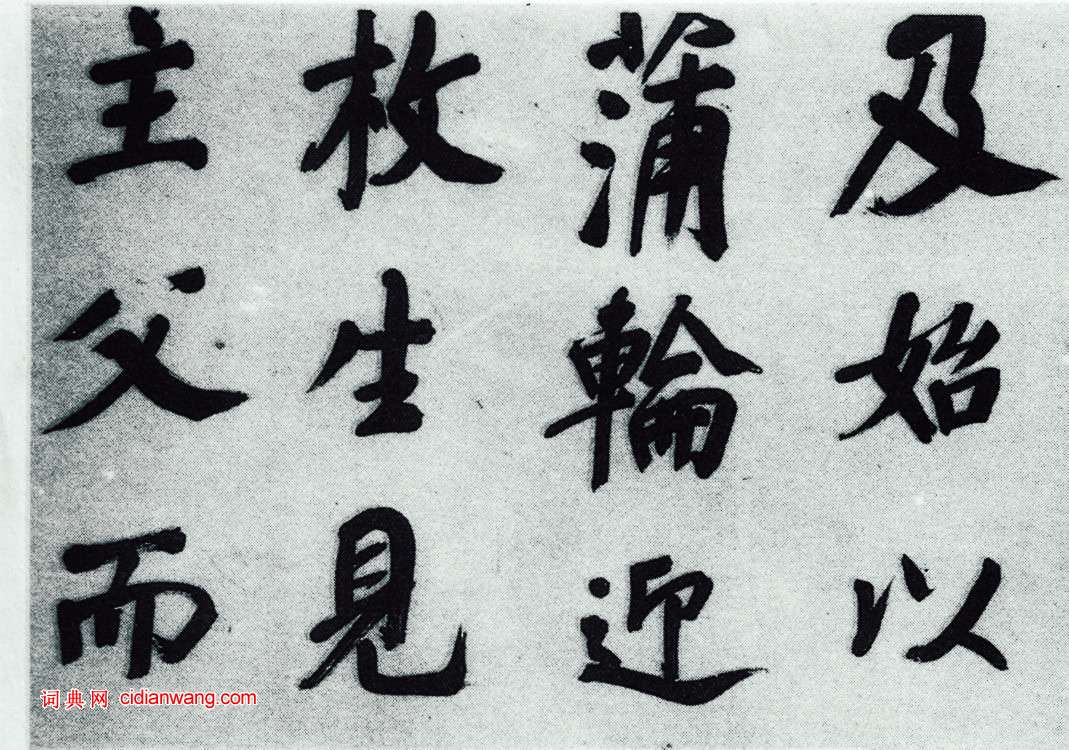 及始以
蒲輪迎
枚生見
主父而
词典网 cidianwang.com